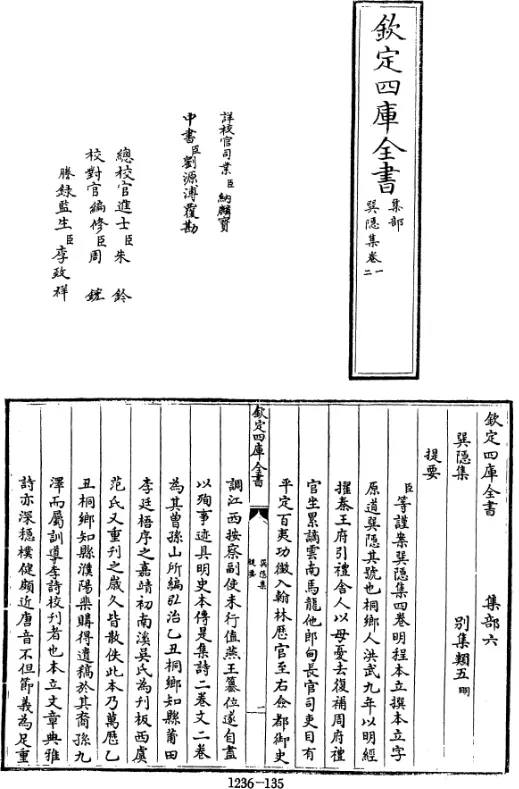 欽定四庫全書
集部
巽隱集卷一
二
詳校官司業臣納麟寶
中書臣劉源溥覆勘
總校官進士臣朱鈐
校對官編修臣周鋐
謄錄監生臣李致祥
欽定四庫全書 集部六
巽隱集 別集類五明
提要
臣等謹案巽隱集四卷明程本立撰本立字
原道巽隱其號也桐鄉人洪武九年以明經
擢秦王府引禮舍人以母憂去復補周府禮
官坐累謫雲南馬龍他郎甸長官司吏目有
平定百夷功徵入翰林歷官至右僉都御史
欽定四庫全書
巽隱集
提要
一
調江西按察副使未行值燕王纂位遂自盡
以殉事迹具明史本傳是集詩二卷文二卷
為其曾孫山所編弘治乙丑桐鄉知縣莆田
李廷梧序之嘉靖初南溪吳氏為刊板西虞
范氏又重刊之歲久皆散佚此本乃萬歷乙
丑桐鄉知縣濮陽棐購得遺稿於其裔孫九
澤而屬訓導李詩校刊者也本立文章典雅
詩亦深穩樸健頗近唐音不但節義為足重
1236-135